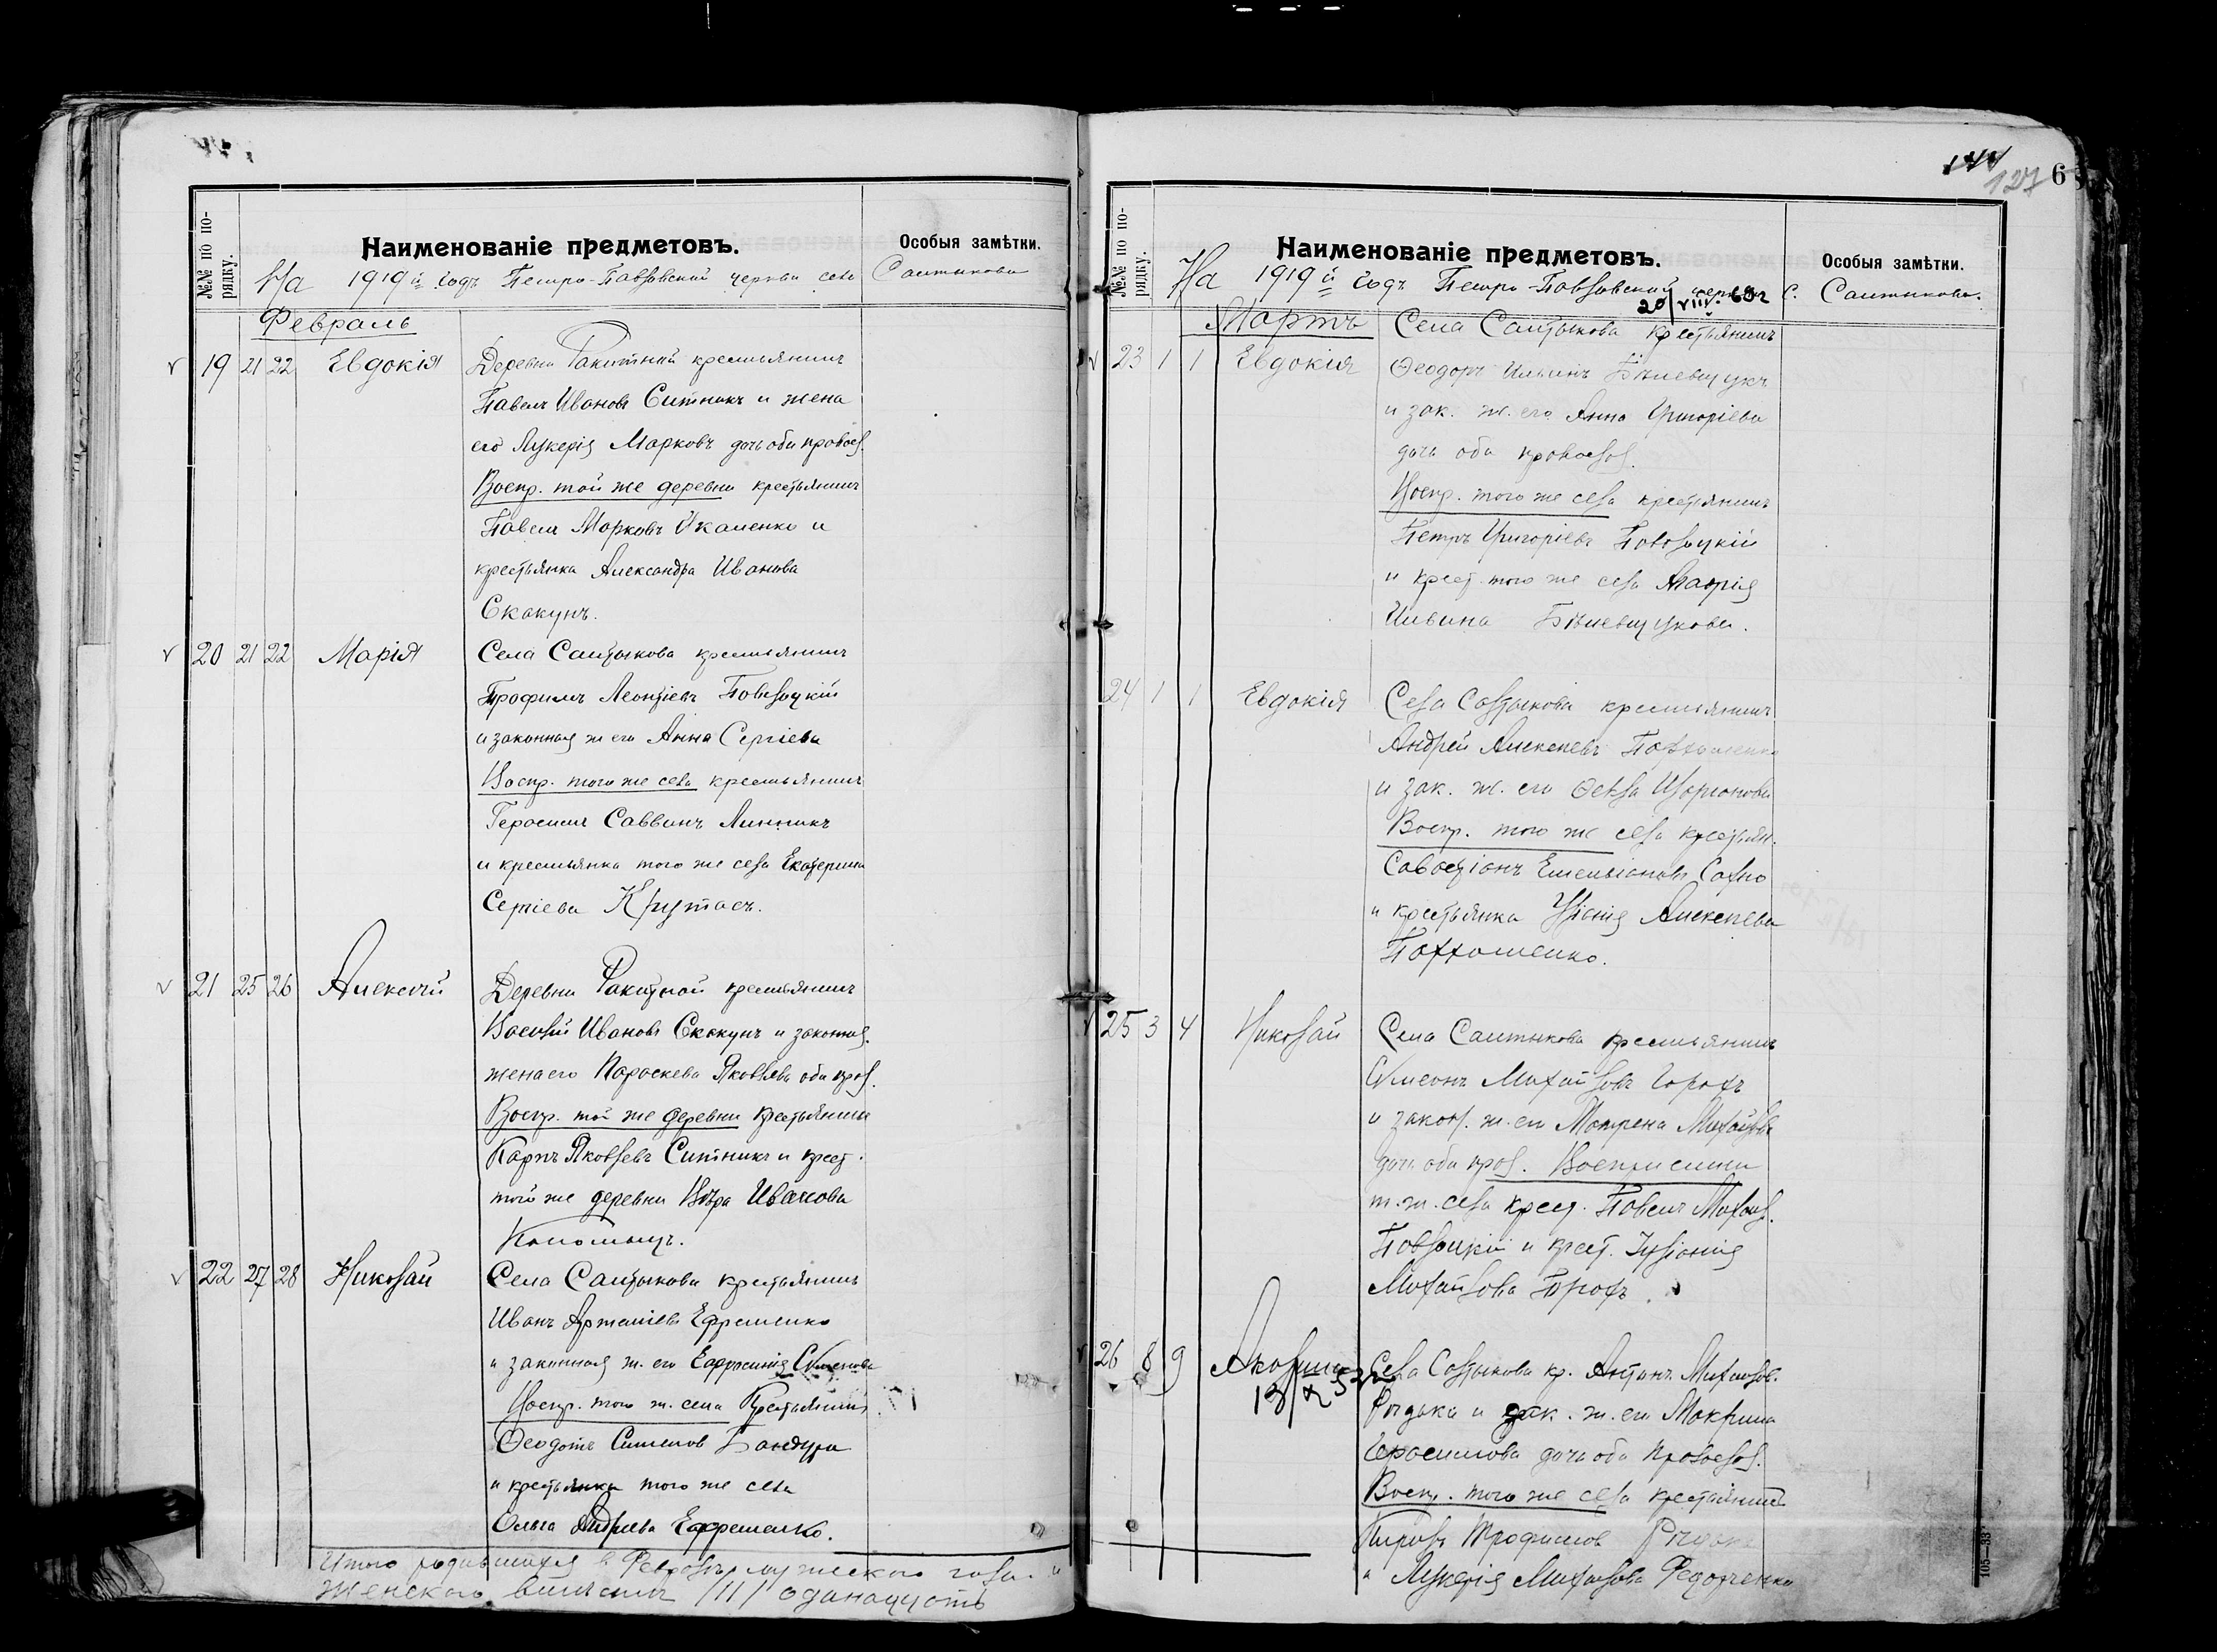 №№ по по-
рядку.
Наименованіе предметовъ.
Особыя замѣтки.
На 1919й годъ Петро-Павловской церкви села Салтыкова
Февраль
19 21 22 Евдокія Деревни Ракитной крестьянинъ
Павелъ Ивановъ Ситникъ и жена
его Лукерія Марковъ дочь оба правосл.
Воспр. той же деревни крестьянинъ
Павелъ Марковъ и
крестьянка Александра Иванова
Скакунъ.
20 21 22 Марія Села Салтыкова крестьянинъ
Трофимъ Леонтіевъ Павлоцкій
и законная ж его Анна Сергіева
Воспр. того же села крестьянинъ
Герасимъ Саввинъ Линникъ
и крестьянка того же села Екатерина
Сергіева
21 25 26 Алексѣй Деревни Ракитной крестьянинъ
Василій Ивановъ Скакунъ и законная.
жена его Параскева Яковлева оба прав.
Воспр. той же деревни крестьянинъ
Карпъ Яковлевъ Ситникъ и крест.
той же деревни Вѣра Иванова
22 27 28 Николай Села Салтыкова крестьянинъ
Иванъ Ефременко
и законная ж. его Евфросинія
Воспр. того ж. села крестьянинъ
Феодотъ Симеонов Бандура
и крестьянка того же села
Ольга Андреева Ефременко.
Итого родившихся в Февралѣ мужского пола и
женского вмѣстѣ /11/ одинадцать
144
127
6
№№ по по-
рядку.
Наименованіе предметовъ.
Особыя замѣтки.
На 1919й годъ Петро-Павловской церкви С. Салтыкова.
20/VIII
Мартъ Села Салтыкова крестьянинъ
23 1 1 Евдокія Феодоръ Ильинъ
и зак. ж. его Анна Григоріева
дочь оба православ.
Воспр. того же села крестьянинъ
Петръ Григоріевъ Павлоцкій
и крест. того же села Марія
Ильина
24 1 1 Евдокія Села Салтыкова крестьянинъ
Андрей Алексѣевъ Пархоменко
и зак. ж. его Фекла
Воспр. того же села крестьян.
Савастіонъ Емельяновъ Сахно
и крестьянка Алексѣева
Пархоменко.
25 3 4 Николай Села Салтыкова крестьянинъ
Симеонъ Михайловъ Горохъ
и закон. ж. его Матрена Михайлова
дочь оба прав. Воспріемники
т. ж. села крест. Павелъ Михайл.
Павлоцкій и крест. Іуліанія
Михайлова Горохъ.
26 8 9 Акулина Села Салтыкова кр. Антонъ Михайлов.
Рудыка и зак. ж. его Макрина
Герасимова дочь оба православ.
Воспр. того же села крестьянинъ
Трофимов
и Лукерія Михайлова Федорченко
105—33